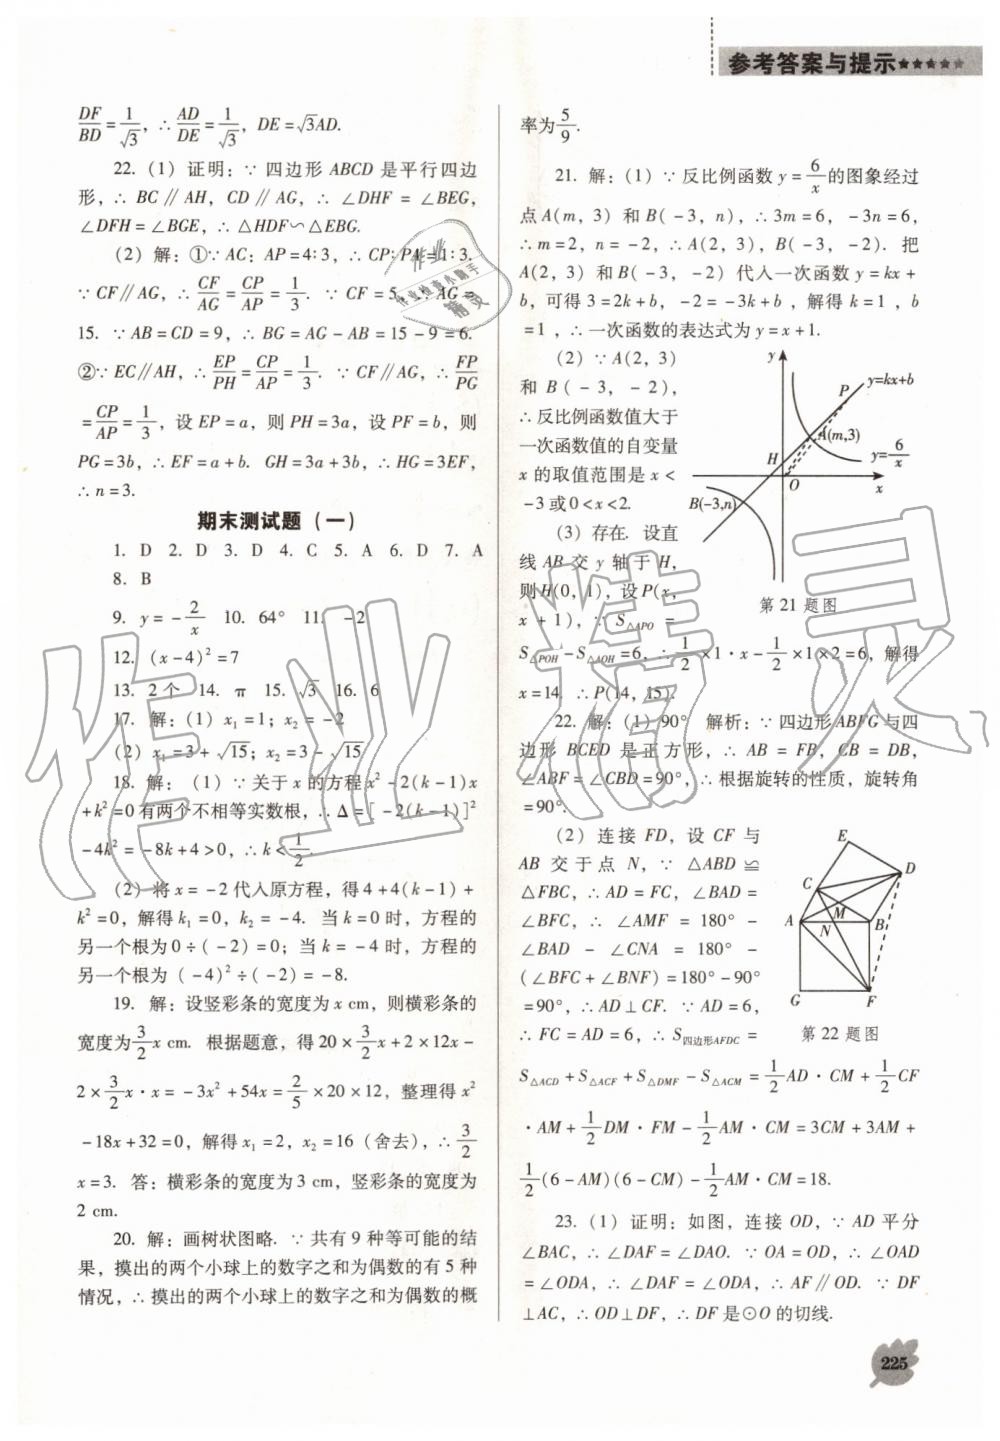 参考答案与提示★★★★★
DF/BD=1/√3,∴AD/DE=1/√3,DE=√3AD.
22.(1)证明:∵四边形ABCD是平行四边
形,∴BC∥AH,CD∥AG,∴∠DHF=∠BEG,
∠DFH=∠BGE,∴△HDF∽△EBG.
(2)解:①∵AC:AP=4:3,∴CP:PA=1:3.
∵CF∥AG,∴CF/AG=CP/AP=1/3.∵CF=5,∴AG=
15.∵AB=CD=9,∴BG=AG-AB=15-9=6.
②∵EC∥AH,∴EP/PH=CP/AP=1/3.∵CF∥AG,∴FP/PG
=CP/AP=1/3,设EP=a,则PH=3a,设PF=b,则
PG=3b,∴EF=a+b.GH=3a+3b,∴HG=3EF,
∴n=3.
期末测试题(一)
1. D 2. D 3. D 4. C 5. A 6. D 7. A
8. B
9. y=-2/x 10. 64° 11. -2
12. (x-4)²=7
13. 2个 14. π 15. √3 16. 6
17. 解:(1)x₁=1;x₂=-2
(2)x₁=3+√15;x₂=3-√15
18. 解:(1)∵关于x的方程x²-2(k-1)x
+k²=0有两个不相等实数根,∴Δ=[-2(k-1)]²
-4k²=-8k+4>0,∴k<1/2.
(2)将x=-2代入原方程,得4+4(k-1)+
k²=0,解得k₁=0,k₂=-4.当k=0时,方程的
另一个根为0÷(-2)=0;当k=-4时,方程的
另一个根为(-4)²÷(-2)=-8.
19. 解:设竖彩条的宽度为x cm,则横彩条的
宽度为3/2x cm.根据题意,得20×3/2x+2×12x-
2×3/2x·x=-3x²+54x=2/5×20×12,整理得x²
-18x+32=0,解得x₁=2,x₂=16(舍去),∴3/2
x=3.答:横彩条的宽度为3 cm,竖彩条的宽度为
2 cm.
20. 解:画树状图略.∵共有9种等可能的结
果,摸出的两个小球上的数字之和为偶数的有5种
情况,∴摸出的两个小球上的数字之和为偶数的概
率为5/9.
21. 解:(1)∵反比例函数y=6/x的图象经过
点A(m,3)和B(-3,n),∴3m=6,-3n=6,
∴m=2,n=-2,∴A(2,3),B(-3,-2).把
A(2,3)和B(-3,-2)代入一次函数y=kx+
b,可得3=2k+b,-2=-3k+b,解得k=1,b
=1,∴一次函数的表达式为y=x+1.
(2)∵A(2,3)
和B(-3,-2),
∴反比例函数值大于
一次函数值的自变量
x的取值范围是x<
-3或0<x<2.
(3)存在.设直
线AB交y轴于H,
则H(0,1),设P(x,
x+1),∵S△APO=
S△POH-S△AOH=6,∴1/2×1·x-1/2×1×2=6,解得
x=14.∴P(14,15).
y
P
y=kx+b
A(m,3)
y=6/x
H
O
x
B(-3,n)
第21题图
22. 解:(1)90° 解析:∵四边形ABFG与四
边形BCED是正方形,∴AB=FB,CB=DB,
∠ABF=∠CBD=90°,∴根据旋转的性质,旋转角
=90°.
(2)连接FD,设CF与
AB交于点N,∵△ABD≌
△FBC,∴AD=FC,∠BAD=
∠BFC,∴∠AMF=180°-
∠BAD-∠CNA=180°-
(∠BFC+∠BNF)=180°-90°
=90°,∴AD⊥CF.∵AD=6,
∴FC=AD=6,∴S四边形AFDC=
S△ACD+S△ACF+S△DMF-S△ACM=1/2AD·CM+1/2CF
·AM+1/2DM·FM-1/2AM·CM=3CM+3AM+
1/2(6-AM)(6-CM)-1/2AM·CM=18.
E
D
C
M
A
N
B
G
F
第22题图
23. (1)证明:如图,连接OD,∵AD平分
∠BAC,∴∠DAF=∠DAO.∵OA=OD,∴∠OAD
=∠ODA,∴∠DAF=∠ODA,∴AF∥OD.∵DF
⊥AC,∴OD⊥DF,∴DF是⊙O的切线.
225
作业精灵